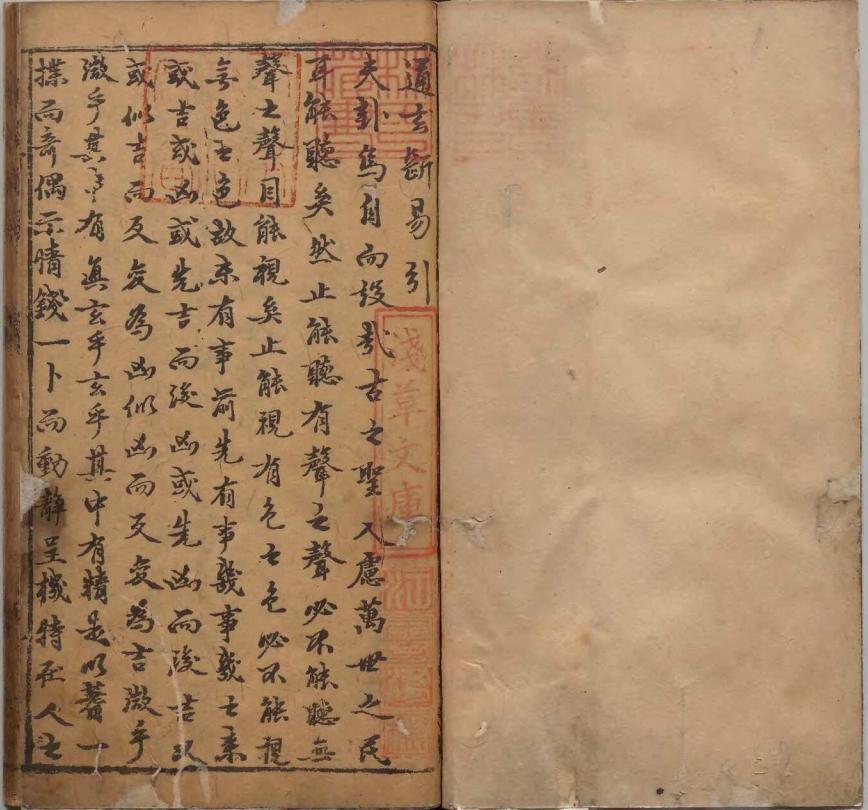 通玄斷易引
夫卦為自而設哉古之聖人慮萬世之民
耳能聽矣然止能聽有聲之聲必不能聽無
聲之聲目能視矣止能視有色之色必不能視
無色之色故未有事前先有事幾事幾之來
或吉或凶或先吉而後凶或先凶而後吉又
或似吉而反変為凶似凶而反变為吉微乎
微乎其中有真玄乎玄乎其中有精是以蓍一
揲而奇偶示情錢一卜而動靜呈機特在人之
淺草文庫